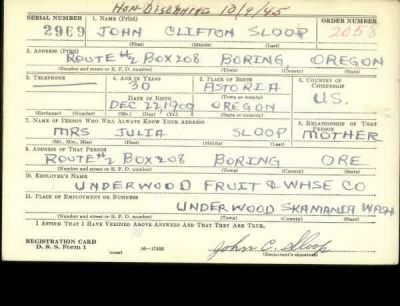 Hon-Discharged 10/9/45
SERIAL NUMBER 1. NAME (Print) ORDER NUMBER
2969 JOHN CLIFTON SLOOP 2058
(First) (Middle) (Last)
2. ADDRESS (Print)
ROUTE #2 BOX 208 BORING, OREGON
(Number and street or R. F. D. number) (Town) (County) (State)
3. TELEPHONE 4. AGE IN YEARS 5. PLACE OF BIRTH 6. COUNTRY OF CITIZENSHIP
30 ASTORIA
DATE OF BIRTH (Town or county)
DEC 22, 1909 OREGON U.S.
(Exchange) (Number) (Mo.) (Day) (Yr.) (State or country)
7. NAME OF PERSON WHO WILL ALWAYS KNOW YOUR ADDRESS 8. RELATIONSHIP OF THAT PERSON
MRS JULIA SLOOP MOTHER
(Mr., Mrs., Miss) (First) (Middle) (Last)
9. ADDRESS OF THAT PERSON
ROUTE #2 BOX 208 BORING ORE
(Number and street or R. F. D. number) (Town) (County) (State)
10. EMPLOYER'S NAME
UNDERWOOD FRUIT & WHSE CO
11. PLACE OF EMPLOYMENT OR BUSINESS
UNDERWOOD SKAMANIA WASH
(Number and street or R. F. D. number) (Town) (County) (State)
I AFFIRM THAT I HAVE VERIFIED ABOVE ANSWERS AND THAT THEY ARE TRUE.
REGISTRATION CARD
D. S. S. Form 1 John C. Sloop
(Registrant's signature)